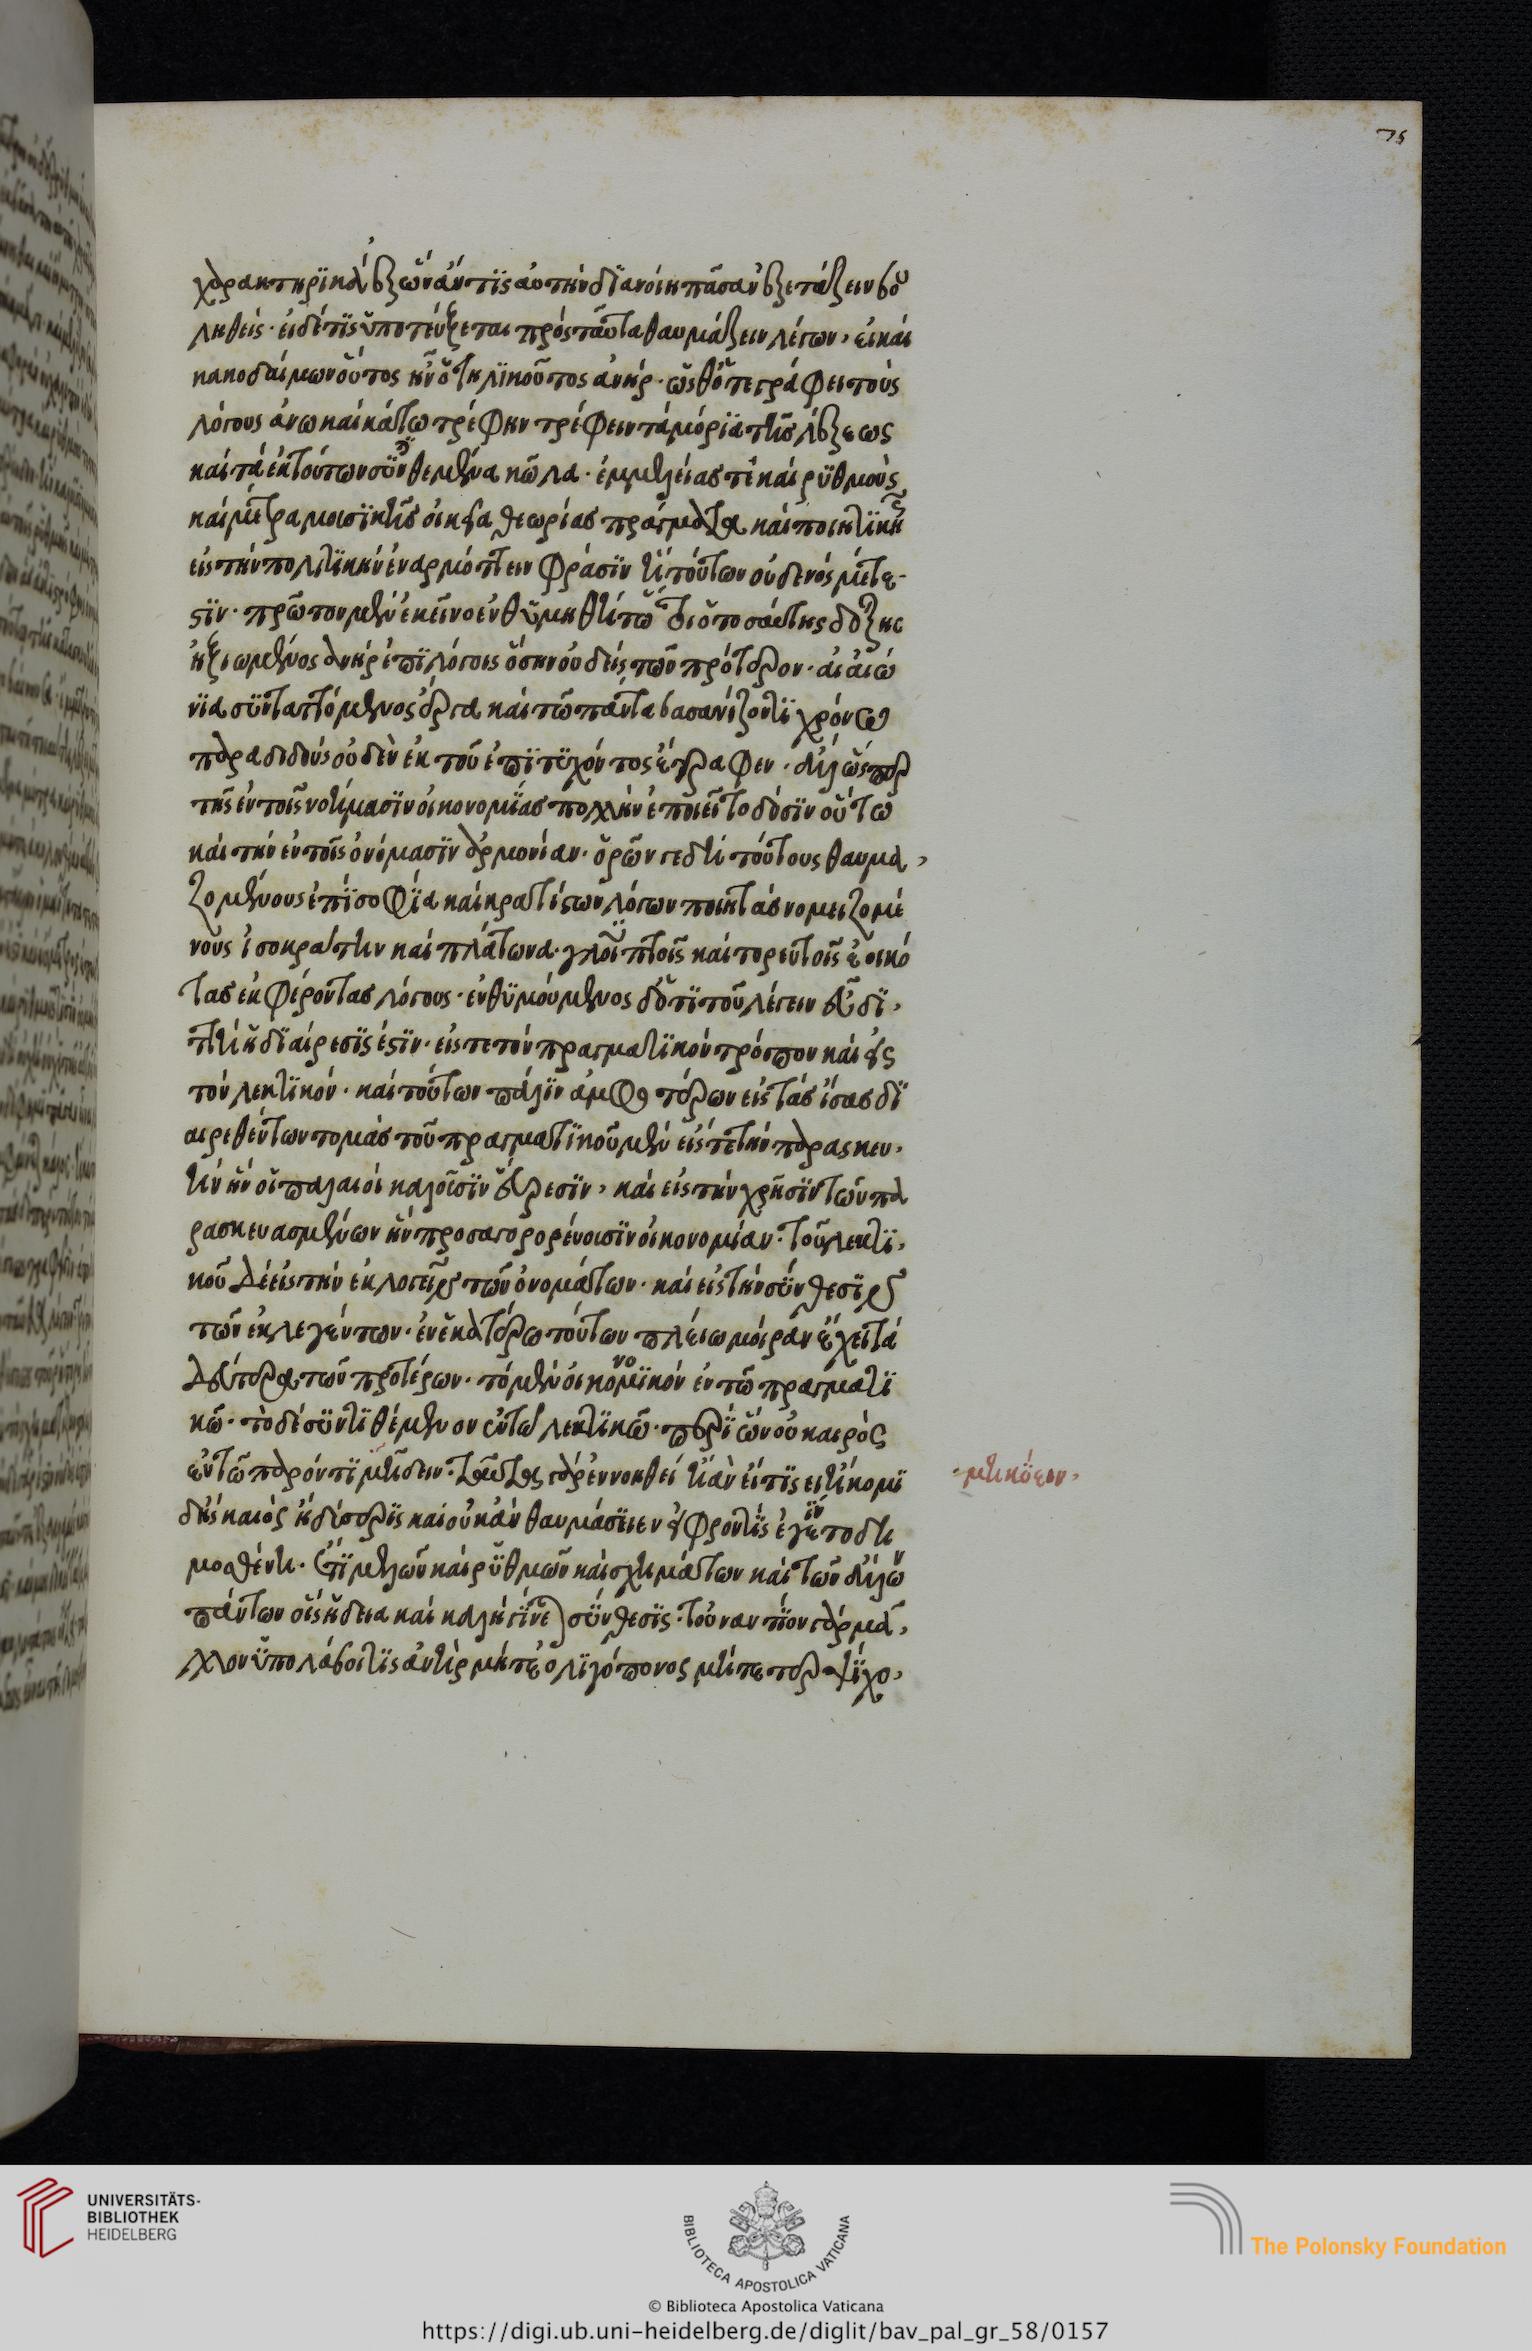 75
χαρακτηρϊκὰ ἐξ ὧν ἄν τϊς αὐτὴν δϊανοίη πᾶσαν ἐξετάζειν βου
ληθείς · εἰ δέ τϊς ὑποτεύξεται πρὸς ταῦτα θαυμάζειν λέγων, εἰ καὶ
κακοδαίμων οὗτος ἦν ὁ τηλϊκοῦτος ἀνήρ · ὥσθ' ὅτε γράφει τοὺς
λόγους ἄνω καὶ κάτω τρέφην τρέφειν τὰ μόρϊα τῆς λέξεως
καὶ τὰ ἐκ τούτων σϋνθεμένα κῶλα · ἐμμελείας τὲ καὶ ρϋθμοὺς
καὶ μέτρα μουσϊκῆς οἰκεῖα θεωρίας πράγματα καὶ ποιητϊκῆ
εἰς τὴν πολϊτϊκὴν ἐναρμόττειν φράσϊν ἧ τούτων οὐδενὸς μέτε-
ϛϊν · πρῶτον μὲν ἐκεῖνο ἐνθϋμηθήτω ὅτι ὁ τοσαύτης δόξης
ἠξιωμένος ἀνὴρ ἐπϊ λόγοις ὅσην οὐδεὶς τῶν πρότερον · αἰ αἰώ
νϊα σϋνταττόμενος ἔργα καὶ τῶ πάντα βασανίζοντϊ χρόνω
παραδιδοὺς οὐδὲν ἐκ τοῦ ἐπϊτϋχόντος ἔγραφεν · ἀλλ' ὥσπερ
τῆς ἐν τοῖς νοήμασϊν οἰκονομϊας πολλὴν ἐποιεῖτο δόσϊν οὕτω
καὶ τὴν ἐν τοῖς ὀνόμασϊν ἁρμονίαν · ὁρῶν γε δὴ τούτους θαυμα,
ζομένους ἐπϊ σοφϊα καὶ κρατίϛων λόγων ποιητὰς νομειζομέ
νους ἰσοκράτην καὶ πλάτωνα · γλϋπτοῖς καὶ τορευτοῖς ἐοικό
τας ἐκφέροντας λόγους · ἐνθϋμούμενος δ' ὅτϊ τοῦ λέγειν εὖ δϊ,
ττὴ ἡ δϊαίρεσϊς ἐϛϊν · εἴς τε τὸν πραγματϊκὸν τρόπον καὶ εἰς
τὸν λεκτϊκόν · καὶ τούτων πάλϊν ἀμφοτέρων εἰς τὰς ἴσας δϊ
αιρεθέντων τομὰς τοῦ πραγματϊκοῦ μὲν εἴς τε τὴν παρασκευ,
ὴν ἣν οἱ παλαιοὶ καλοῦσϊν εὕρεσϊν, καὶ εἰς τὴν χρῆσϊν τῶν πα
ρασκευασμένων ἣν προσαγορορεύουσϊν οἰκονομίαν · τοῦ λεκτϊ,
κοῦ δὲ εἰς τὴν ἐκλογεῖν τῶν ὀνομάτων · καὶ εἰς τὴν σϋνθεσϊν
τῶν ἐκλεγέντων · ἐν ἑκατέρω τούτων πλείω μοίραν ἔχει τὰ
δεύτερα τῶν προτέρων · τὸ μὲν οἰκονομϊκὸν ἐν τῶ πραγματϊ
κῶ · τὸ δὲ σϋντϊθέμενον ἐν τῶ λεκτϊκῶ · περϊ ὧν οὐ καιρὸς
ἐν τῶ παρόντϊ μῆσειν · ταῦτα γὰρ ἐννοηθεὶ
·μηκύειν,
μοσθένη · ἐπϊ μελῶν καὶ ρϋθμῶν καὶ σχημάτων καὶ τῶν ἄλλων
πάντων οἷς ἡδεῖα καὶ καλὴ γϊνεται σϋνθεσϊς · τοὐναντϊον γὰρ μᾶ,
λλον ὑπολάβοι τϊς ἀνὴρ μήτε ὀλϊγόπονος μήτε
UNIVERSITÄTS-
BIBLIOTHEK
HEIDELBERG
BIBLIOTECA APOSTOLICA VATICANA
The Polonsky Foundation
© Biblioteca Apostolica Vaticana
https://digi.ub.uni-heidelberg.de/diglit/bav_pal_gr_58/0157